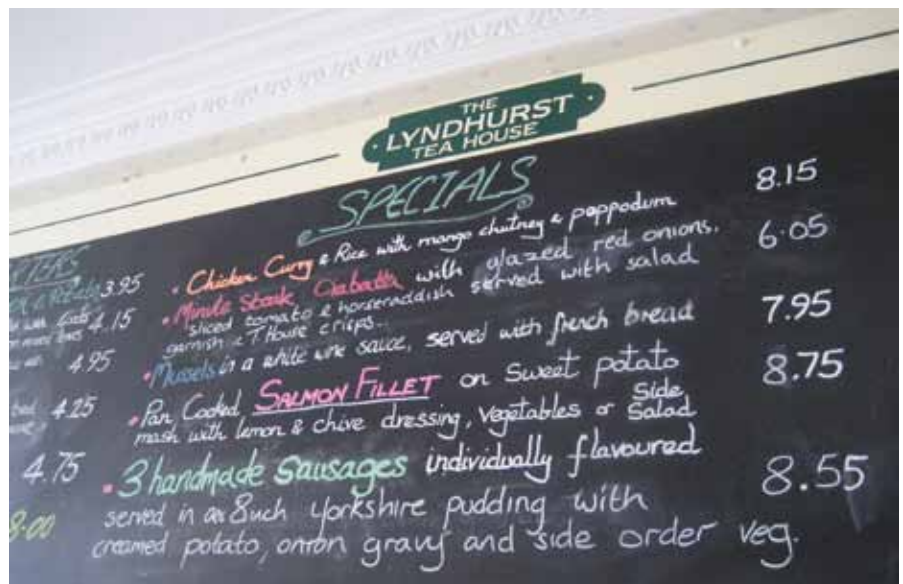 THE
LYNDHURST
TEA HOUSE
SPECIALS
• Chicken Curry & Rice with mango chutney & poppodum 8.15
• Minute Steak Ciabatta with glazed red onions, 6.05
sliced tomato & horseraddish served with salad
garnish & T. House crisps...
• Mussels in a white wine sauce, served with french bread 7.95
• Pan Cooked SALMON FILLET on Sweet potato 8.75
mash with lemon & chive dressing, vegetables or Side Salad
• 3 handmade Sausages individually flavoured 8.55
served in an 8 inch Yorkshire pudding with
creamed potato, onion gravy and side order veg.
3.95
4.15
4.95
4.25
4.75
8.00